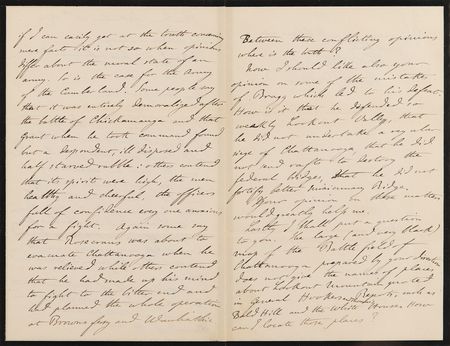 if I can easily get at the truth concerning
mere facts it is not so when opinions
differ about the moral state of an
army. So is the case for the Army
of the Cumberland. Some people say
that it was entirely demoralized after
the battle of Chickamauga and that
Grant when he took command found
but a despondent, ill disposed and
half starved rabble: others contend
that its spirit were high, the men
healthy and cheerful, the officers
full of confidence every one anxious
for a fight. Again some say
that Rosecrans was about to
evacuate Chattanooga when he
was relieved while others contend
that he had made up his mind
to fight to the bitter end and
had planned the whole operation
at Browns ferry and Wauhatchie.
Between these conflicting opinions
where is the truth?
Now I should like also your
opinion on some of the mistakes
of Bragg which led to his defeat.
How is it that he defended so
weakly Lookout Valley, that
he did not undertake a regular
siege of Chattanooga, that he did
not send rafts to destroy the
federal bridges, that he did not
fortify better Missionary Ridge.
Your opinion on these matters
would greatly help me.
Lastly I shall put a question
to you. The large (and very black)
map of the Battlefield of
Chattanooga prepared by your direction
does not give the names of places
about Lookout Mountain quoted
in General Hookers Reports, such as
Bald Hill and the White House. How
can I locate those places?